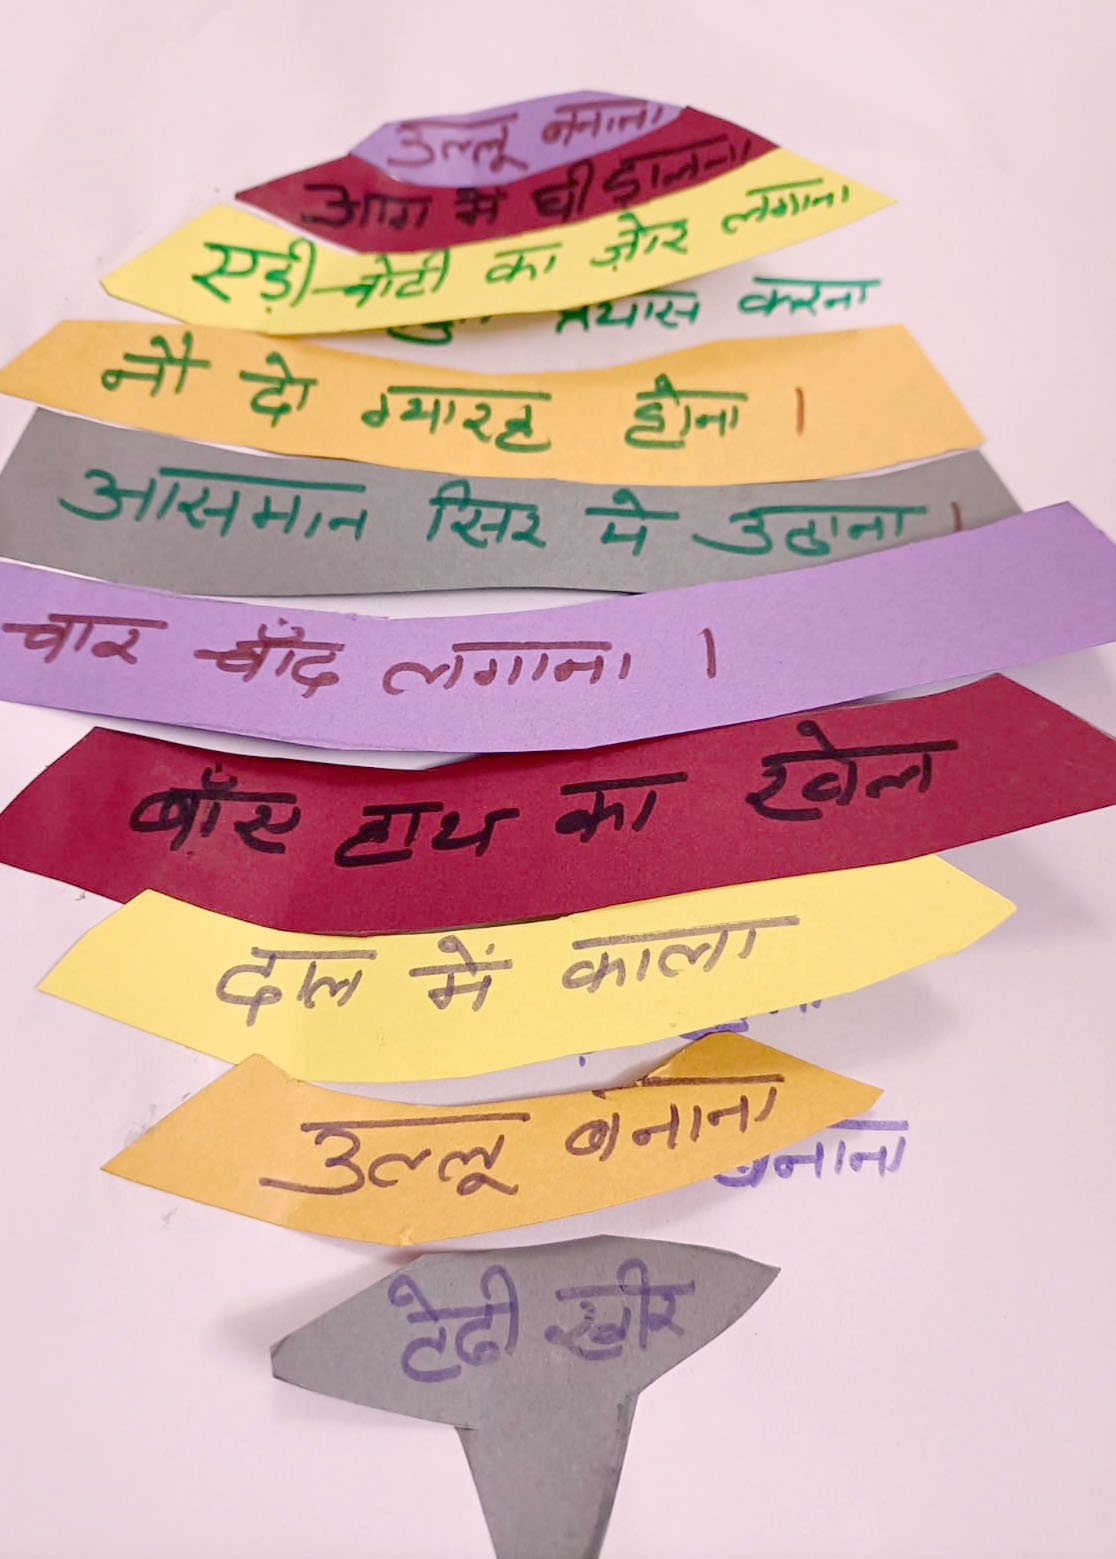 उल्लू बनाना
आग में घी डालना
एड़ी-चोटी का ज़ोर लगाना
प्रयास करना
नौ दो ग्यारह होना ।
आसमान सिर पे उठाना ।
चार चाँद लगाना ।
बाँए हाथ का खेल
दाल में काला
उल्लू बनाना
बनाना
टेढी खीर